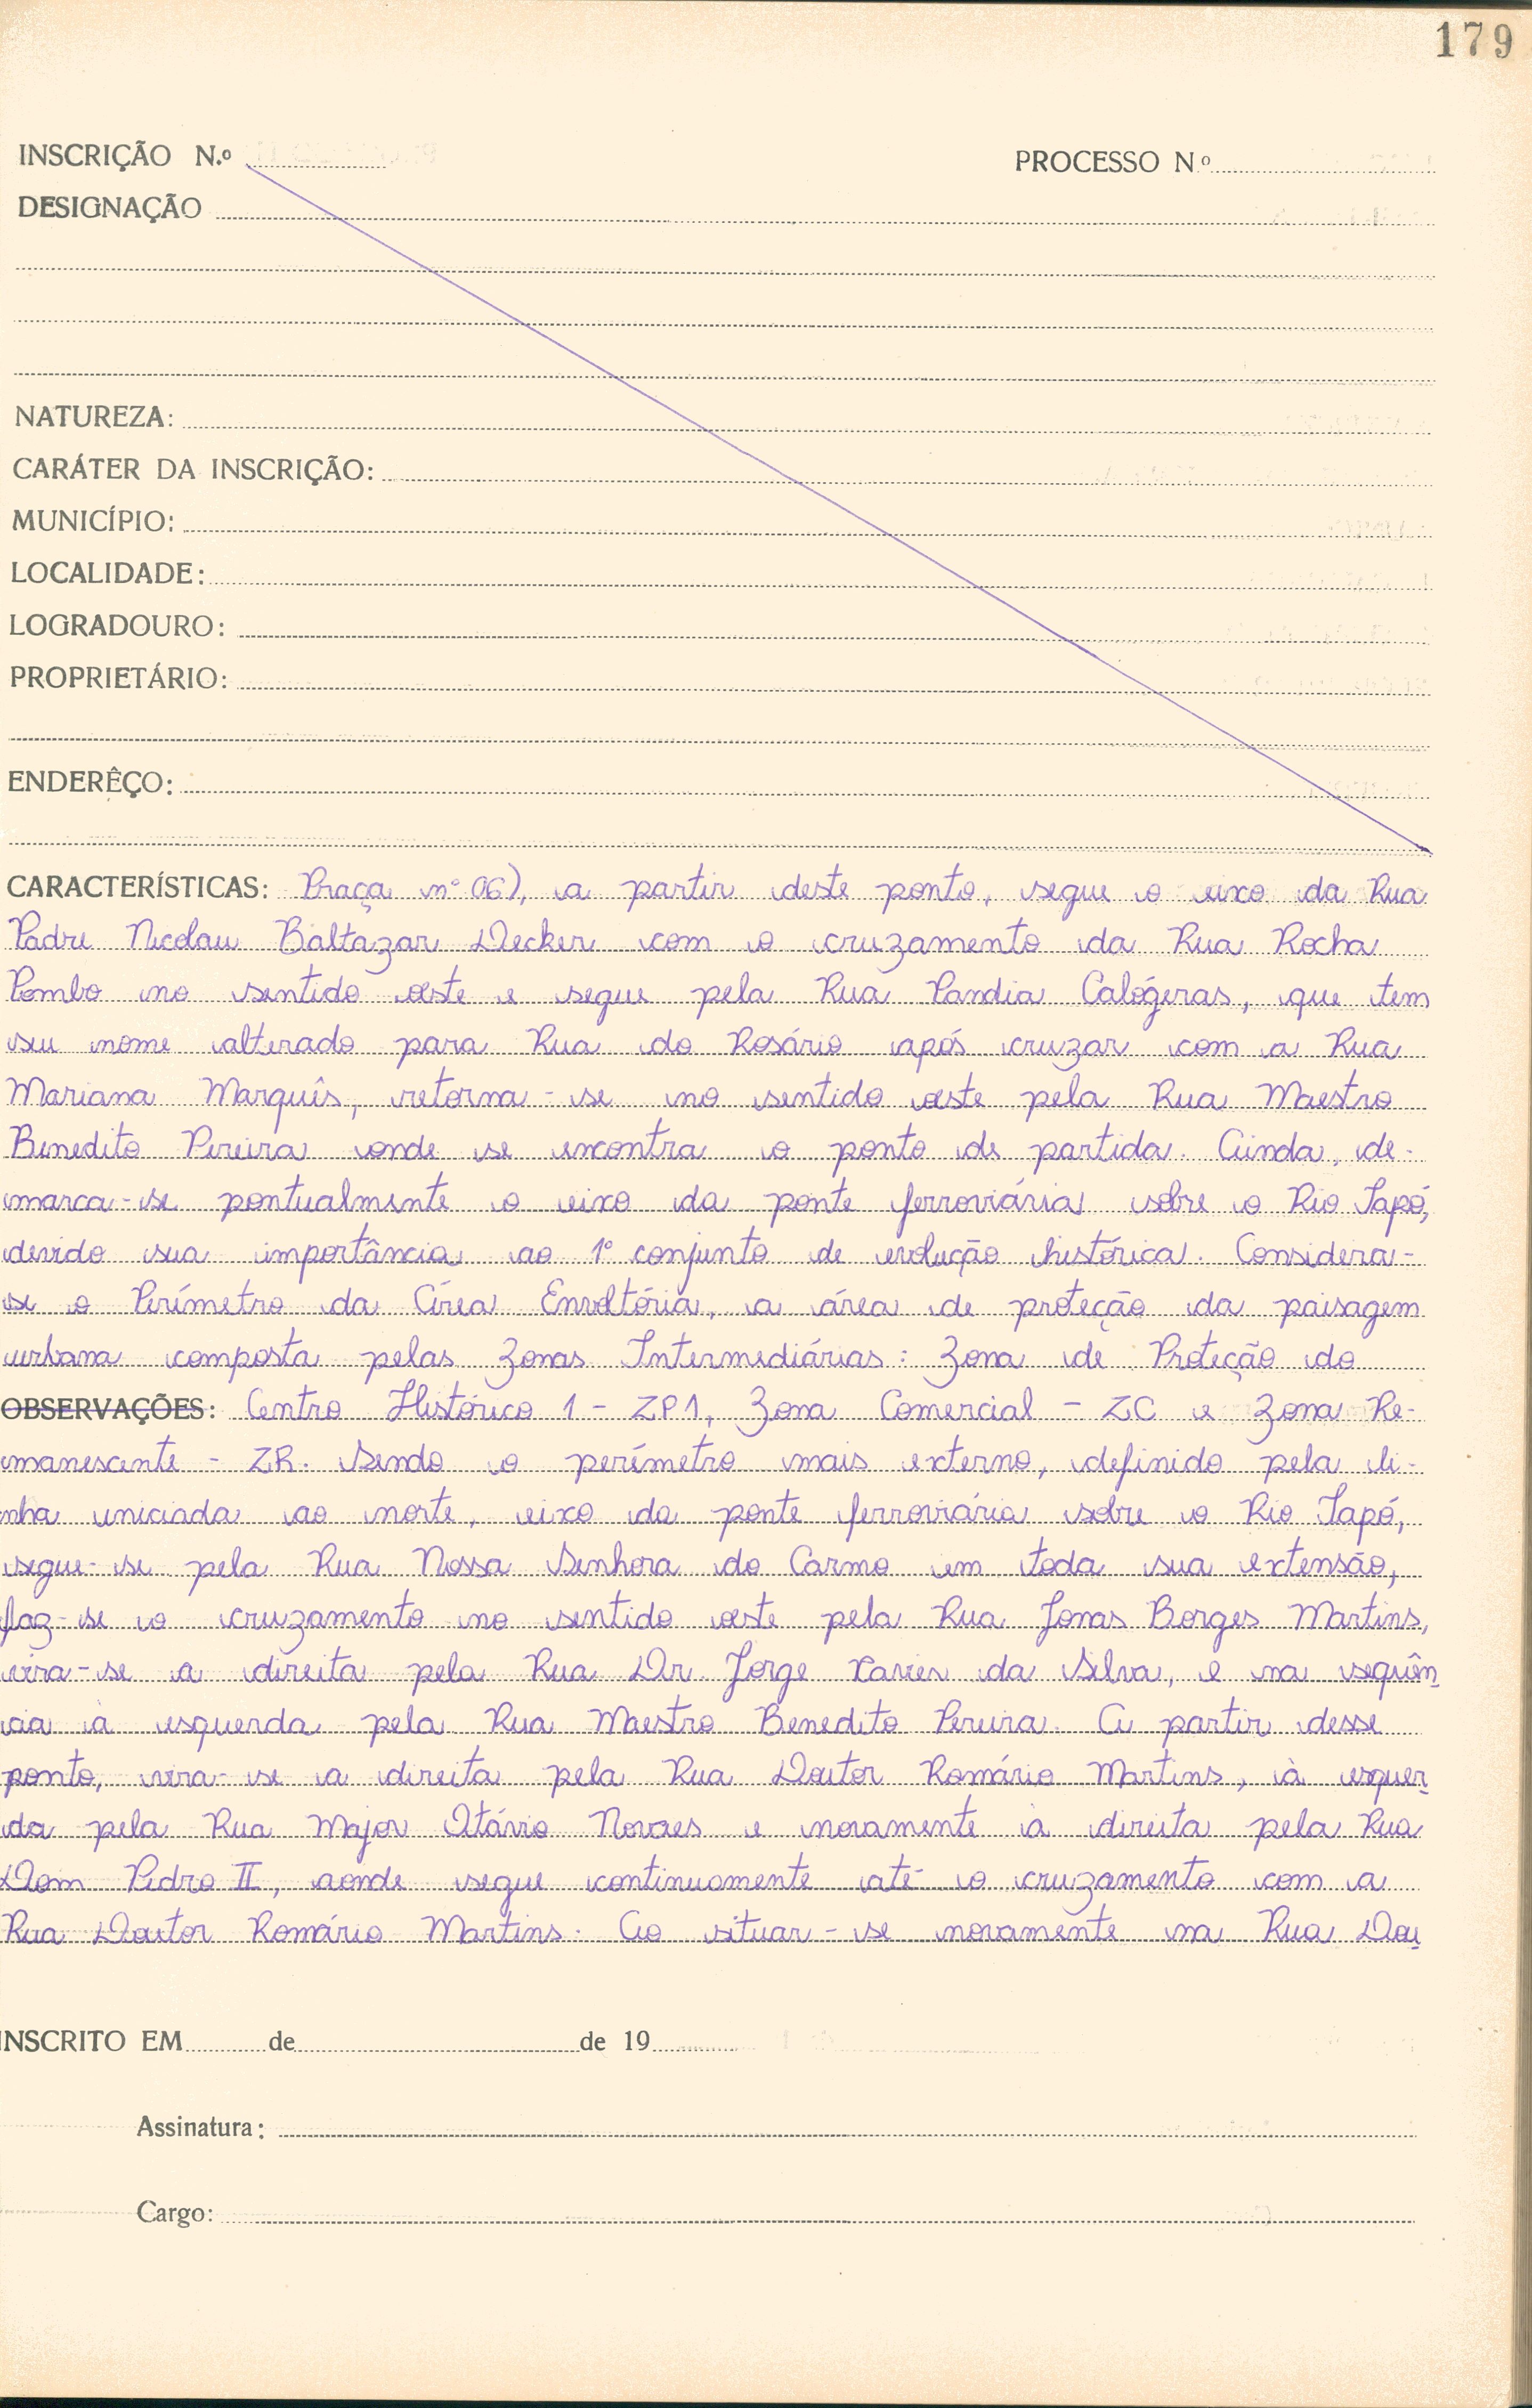 179
INSCRIÇÃO N.º PROCESSO Nº
DESIGNAÇÃO
NATUREZA:
CARÁTER DA INSCRIÇÃO:
MUNICÍPIO:
LOCALIDADE:
LOGRADOURO:
PROPRIETÁRIO:
ENDERÊÇO:
CARACTERÍSTICAS: Praça nº 06), a partir deste ponto, segue o eixo da Rua
Padre Nicolau Baltazar Decker com o cruzamento da Rua Rocha
Pombo no sentido oeste e segue pela Rua Pandia Calógeras, que tem
seu nome alterado para Rua do Rosário após cruzar com a Rua
Mariana Marquês, retorna-se no sentido oeste pela Rua Maestro
Benedito Pereira onde se encontra o ponto de partida. Ainda, de-
marca-se pontualmente o eixo da ponte ferroviária sobre o Rio Iapó,
devido sua importância ao 1º conjunto de evolução histórica. Considera-
se o Perímetro da Área Envoltória, a área de proteção da paisagem
urbana composta pelas Zonas Intermediárias: Zona de Proteção do
OBSERVAÇÕES: Centro Histórico 1 - ZP1, Zona Comercial - ZC e Zona Re-
manescente - ZR. Sendo o perímetro mais externo, definido pela li-
nha iniciada ao norte, eixo da ponte ferroviária sobre o Rio Iapó,
segue-se pela Rua Nossa Senhora do Carmo em toda sua extensão,
faz-se o cruzamento no sentido oeste pela Rua Jonas Borges Martins,
vira-se a direita pela Rua Dr. Jorge Xavier da Silva, e na sequên
cia à esquerda pela Rua Maestro Benedito Pereira. A partir desse
ponto, vira-se a direita pela Rua Doutor Romário Martins, à esquer
da pela Rua Major Otávio Novaes e novamente à direita pela Rua
Dom Pedro II, aonde segue continuamente até o cruzamento com a
Rua Doutor Romário Martins. Ao situar-se novamente na Rua Dou
INSCRITO EM de de 19
Assinatura:
Cargo: